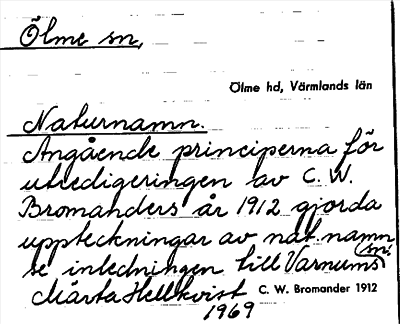 Ölme sn,
Ölme hd, Värmlands län
Naturnamn.
Angående principerna för
utredigeringen av C. W.
Bromanders år 1912 gjorda
uppteckningar av nat.namn
se inledningen till Varnums sn.
Märta Hellkvist C. W. Bromander 1912
1969